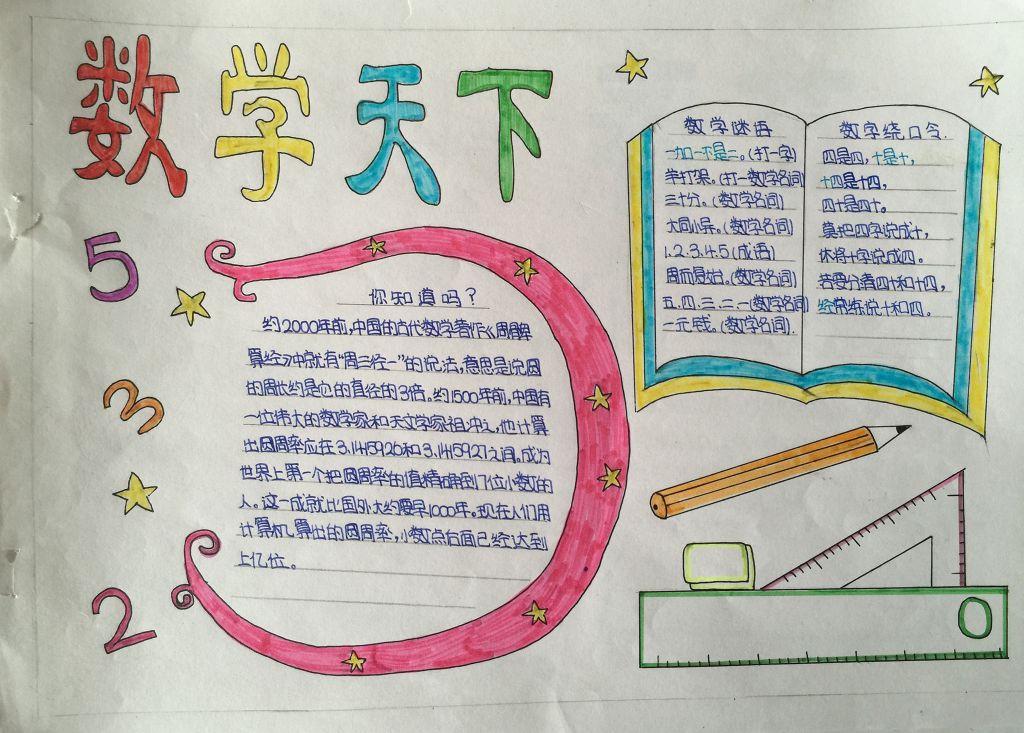 数学天下
5
3
2
你知道吗？
约2000年前,中国的古代数学著作《周髀
算经》中就有“周三径一”的说法,意思是说圆
的周长约是它的直径的3倍。约1500年前,中国有
一位伟大的数学家和天文学家祖冲之,他计算
出圆周率应在3.1415926和3.1415927之间。成为
世界上第一个把圆周率的值精确到7位小数的
人。这一成就比国外大约要早1000年。现在人们用
计算机算出的圆周率,小数点后面已经达到
上亿位。
数学谜语
一加一不是二。(打一字)
羊打架。(打一数学名词)
三十分。(数学名词)
大同小异。(数学名词)
1.2.3.4.5(成语)
周而复始。(数学名词)
五.四.三.二.一(数学名词)
一元钱。(数学名词).
数字绕口令.
四是四,十是十,
十四是十四,
四十是四十。
莫把四字说成十,
休将十字说成四。
若要分清四十和十四,
经常练说十和四。
0